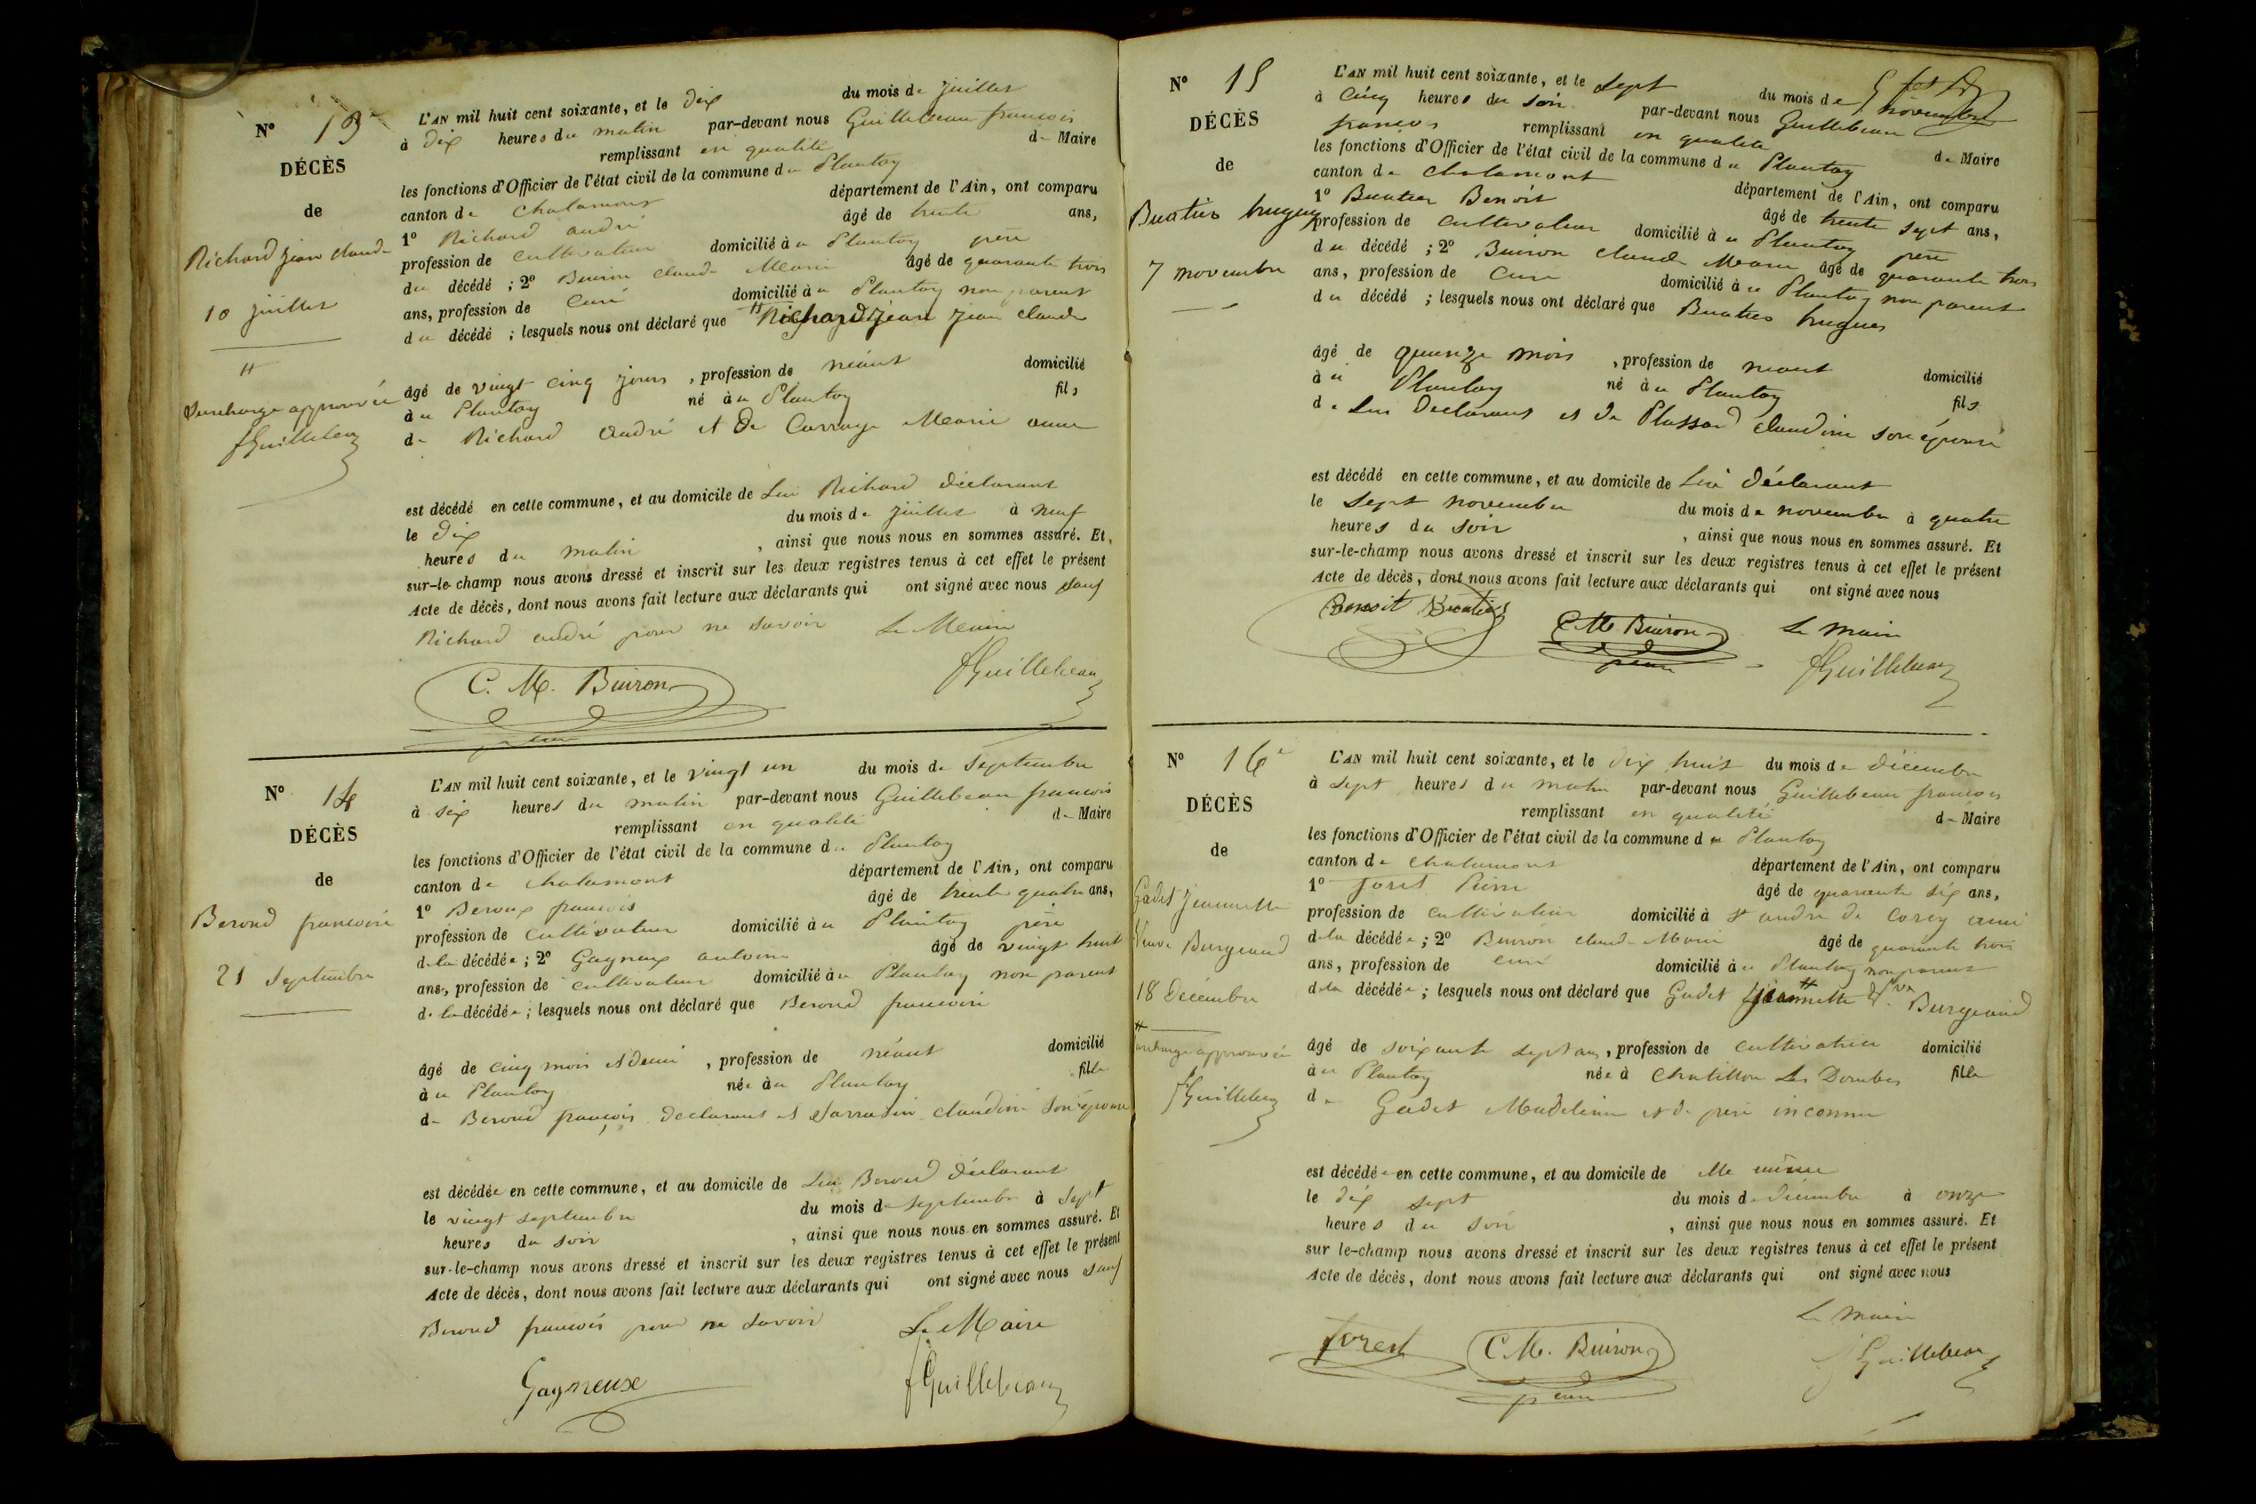 N° 13
DÉCÈS
de
Richard jean claude
10 juillet
H
Surcharge approuvée
fGuillebeau
L'AN mil huit cent soixante, et le dix du mois de juillet
à dix heures du matin par-devant nous Guillebeau francois
remplissant en qualité de Maire
les fonctions d'Officier de l'état civil de la commune du Plantay
canton de Chalamont département de l'Ain, ont comparu
1° Richard andré âgé de trente ans,
profession de cultivateur domicilié à u Plantay père
du décédé ; 2° Buiron claude Marie âgé de quarante trois
ans, profession de Curé domicilié à u Plantay non parent
du décédé ; lesquels nous ont déclaré que Richard jean claude
âgé de vingt cinq jours , profession de néant domicilié
à u Plantay né à u Plantay fils
de Richard andré et de Carrage Marie anne
est décédé en cette commune, et au domicile de Lui Richard déclarant
le dix du mois de juillet à neuf
heures du matin , ainsi que nous nous en sommes assuré. Et,
sur-le-champ nous avons dressé et inscrit sur les deux registres tenus à cet effet le présent
Acte de décès, dont nous avons fait lecture aux déclarants qui ont signé avec nous sauf
Richard andré pour ne savoir Le Maire
C. M. Buiron fGuillebeau
curé
N° 14
DÉCÈS
de
Beroud francoise
21 Septembre
L'AN mil huit cent soixante, et le vingt un du mois de Septembre
à six heures du matin par-devant nous Guillebeau francois
remplissant en qualité de Maire
les fonctions d'Officier de l'état civil de la commune du Plantay
canton de chalamont département de l'Ain, ont comparu
1° Beroud francois âgé de trente quatre ans,
profession de cultivateur domicilié à u Plantay père
de la décédée ; 2° Gagneux antoine âgé de vingt huit
ans, profession de cultivateur domicilié à u Plantay non parent
de la décédée ; lesquels nous ont déclaré que Beroud francoise
âgé de cinq mois et demi , profession de néant domicilié
à u Plantay née à u Plantay fille
de Beroud françois declarant et Sarrasin claudine son épouse
est décédée en cette commune, et au domicile de Lui Beroud déclarant
le vingt septembre du mois de septembre à Sept
heures du soir , ainsi que nous nous en sommes assuré. Et
sur-le-champ nous avons dressé et inscrit sur les deux registres tenus à cet effet le présent
Acte de décès, dont nous avons fait lecture aux déclarants qui ont signé avec nous sauf
Beroud francois pour ne savoir Le Maire
Gagneuse fGuillebeau
N° 15
DÉCÈS
de
Buatier hugues
7 novembre
L'AN mil huit cent soixante, et le sept du mois de novembre
à cinq heures du soir par-devant nous Guillebeau
francois remplissant en qualité de Maire
les fonctions d'Officier de l'état civil de la commune du Plantay
canton de chalamont département de l'Ain, ont comparu
1° Buatier Benoit âgé de trente sept ans,
profession de cultivateur domicilié à u Plantay père
du décédé ; 2° Buiron claude Marie âgé de quarante trois
ans, profession de Curé domicilié à u Plantay non parent
du décédé ; lesquels nous ont déclaré que Buatier hugues
âgé de quinze mois , profession de néant domicilié
à u Plantay né à u Plantay fils
de Lui Declarant et de Plassard claudine son épouse
est décédé en cette commune, et au domicile de Lui déclarant
le Sept novembre du mois de novembre à quatre
heures du soir , ainsi que nous nous en sommes assuré. Et
sur-le-champ nous avons dressé et inscrit sur les deux registres tenus à cet effet le présent
Acte de décès, dont nous avons fait lecture aux déclarants qui ont signé avec nous
Benoit Buatier C M Buiron Le maire
curé fGuillebeau
N° 16
DÉCÈS
de
Gadet jeannette
Veuve Burgeaud
18 Décembre
H
surcharge approuvée
fGuillebeau
L'AN mil huit cent soixante, et le dix huit du mois de décembre
à sept heures du matin par-devant nous Guillebeau francois
remplissant en qualité de Maire
les fonctions d'Officier de l'état civil de la commune du Plantay
canton de chalamont département de l'Ain, ont comparu
1° forest Pierre âgé de quarante six ans,
profession de cultivateur domicilié à St andré de Corcy ami
de la décédée ; 2° Buiron claude Marie âgé de quarante trois
ans, profession de curé domicilié à u Plantay non parent
de la décédée ; lesquels nous ont déclaré que Gadet jeannette Vve Burgeaud
âgé de soixante sept ans , profession de cultivatrice domicilié
à u Plantay née à Chatillon Les Dombes fille
de Gadet Madeleine et de père inconnu
est décédée en cette commune, et au domicile de elle même
le dix sept du mois de décembre à onze
heures du soir , ainsi que nous nous en sommes assuré. Et
sur le-champ nous avons dressé et inscrit sur les deux registres tenus à cet effet le présent
Acte de décès, dont nous avons fait lecture aux déclarants qui ont signé avec nous
Le maire
forest C. M. Buiron fGuillebeau
curé